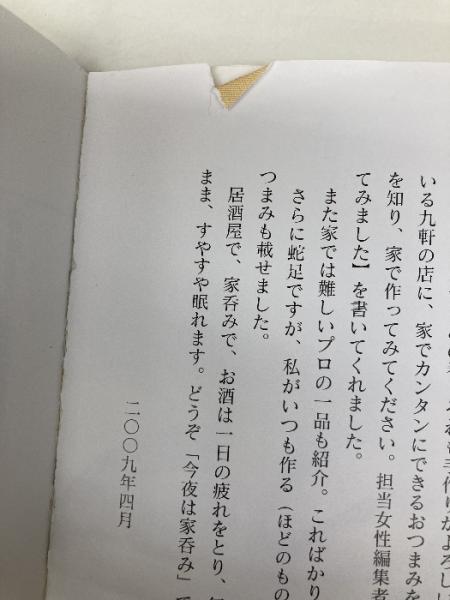 れも手作りがよろしい
いる九軒の店に、家でカンタンにできるおつまみを
を知り、家で作ってみてください。担当女性編集者
てみました】を書いてくれました。
また家では難しいプロの一品も紹介。こればかり
さらに蛇足ですが、私がいつも作る（ほどのもの
つまみも載せました。
居酒屋で、家呑みで、お酒は一日の疲れをとり、
まま、すやすや眠れます。どうぞ「今夜は家呑み」で
二〇〇九年四月